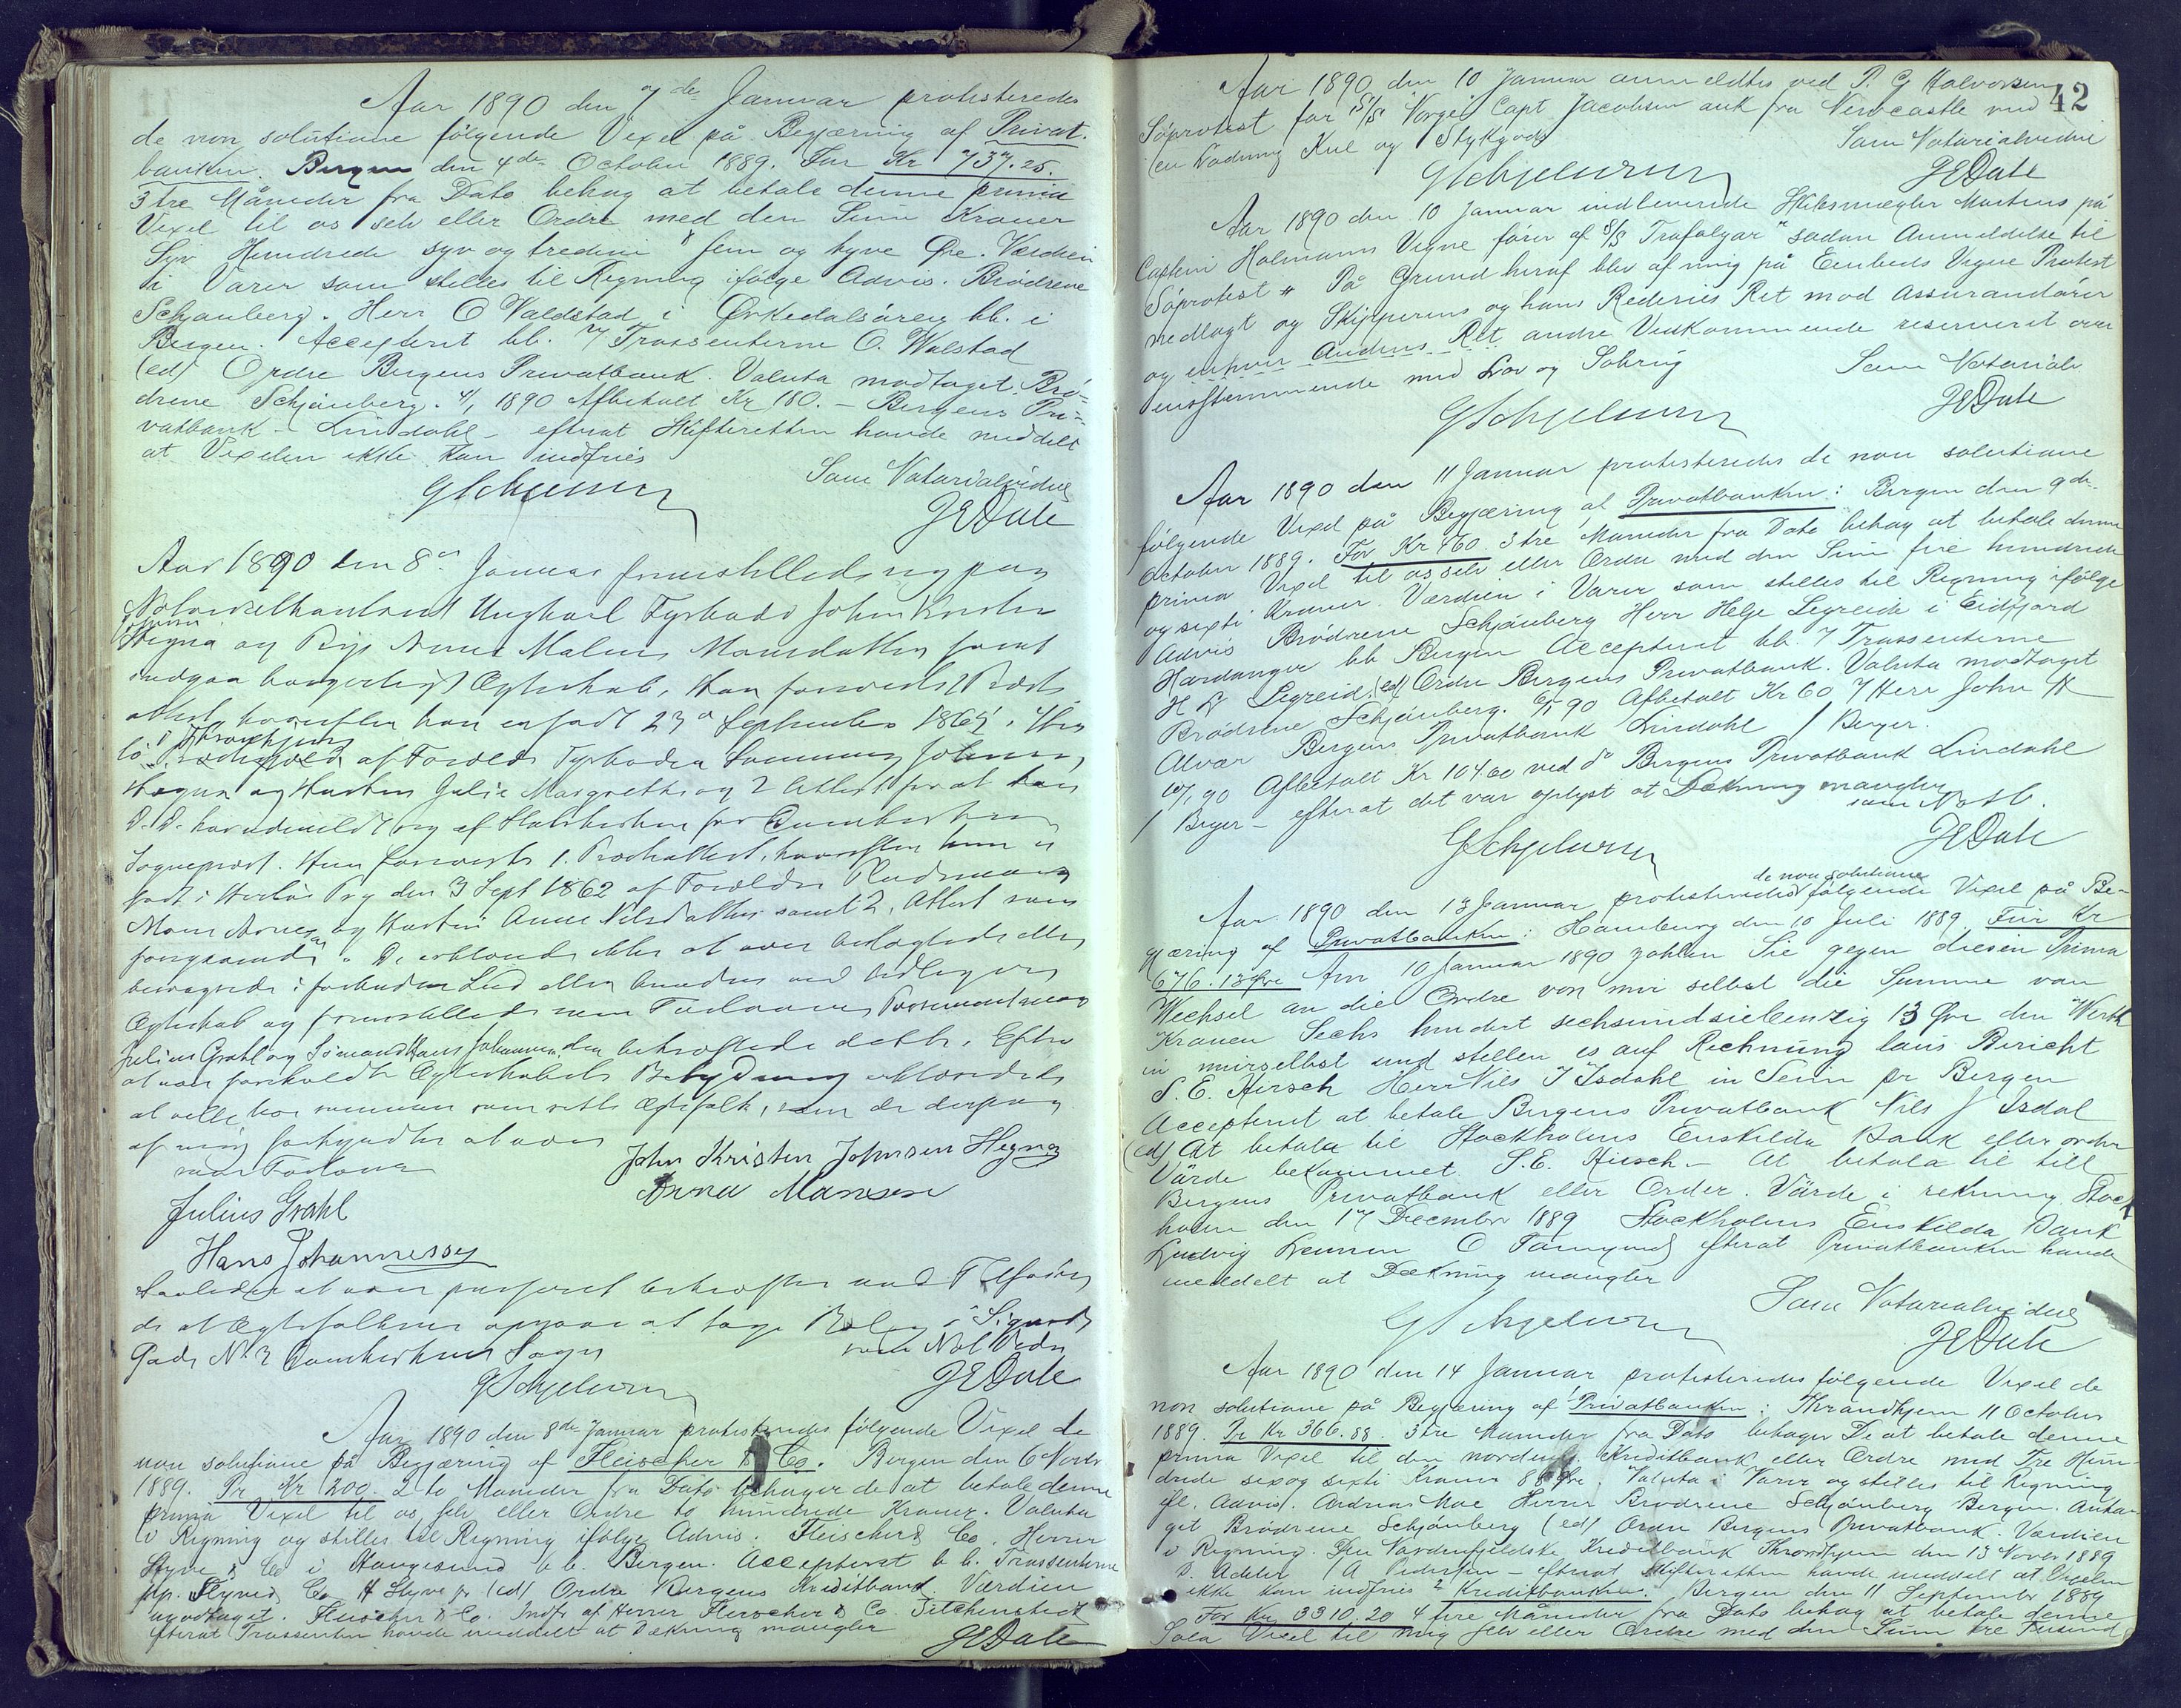 Aar 1890 den 7de Januar protesteredes
de non solutione følgende Vexel på Begjæring af Privat-
banken. Bergen den 4de October 1889. For Kr 737.25.
3 tre Måneder fra Dato behag at betale denne prima
Vexel til os selv eller Ordre med den Sum Kroner
Syv Hundrede syv og tredive & fem og tyve Øre. Værdien
i Varer som stilles til Regning ifølge Advis. Brødrene
Schjånberg. Herr O Valdstad i Ørkedalsøren bb. i
Bergen. Accepteret bb. Trassenterne O. Walstad
(ed) Ordre Bergens Privatbank. Valuta modtaget. Brø-
drene Schjånberg. 4/1 1890 Afbetalt Kr 180. - Bergens Pri-
vatbank - Lindahl - efterat Skifteretten havde meddelt
at Vexelen ikke kan indfries
Som Notarialvidne
JEDale
Aar 1890 den 8de Januar fremstillede sig paa
Notarialkontoret Ungkarl Fyrbøder John Kristen
Hegna og Pige Anna Malene Monsdatter for at
indgaa borgerligt Ægteskab. Han foreviste 1 Præste
attest hvorefter han er født 23de September 1865 i
af Forældre Fyrbøder Johnsen
Hegna og Hustru Julie Margrethe og 2 Attest for at han
D. D. har udmeldt sig af Statskirken for Domkirkens
Sognepræst. Hun foreviste 1. Præsteattest, hvorefter hun er
født i Herlø Prg den 3 Sept 1862 af Forældre
Mons og Hustru Anne Nilsdatter samt 2. Attest som
foregaaende. De erklærede ikke at være beslægtede eller
besvogrede i forbudne Led eller bundne ved tidligere
Ægteskab og fremstillede som Forlovere
Julius Grahl og Sømand Hans Johannessen, der bekræftede dette. Efter
at være foreholdt Ægteskabets Betydning erklærede de
at ville leve sammen som rette Ægtefolk, som de derpaa
af mig forkyndtes at være
John Kristen Johnsen Hegna
som Forlover
Anna Monsen
Julius Grahl
Hans Johannessen
Saaledes at være passeret bekræftes med Tilføiende
at Ægtefolkene agter at tage Bolig i Sigurds
Gade No 2 Domkirkens Sogn
som Not Vidne
JEDale
Aar 1890 den 8de Januar protesteredes følgende Vexel de
non solutione på Begjæring af Fleischer & Co. Bergen den 6 Novbr
1889. Pr Kr 200. 2 to Måneder fra Dato behager de at betale denne
prima Vexel til os selv eller Ordre to hundrede Kroner. Valuta
i Regning og stilles til Regning ifølge Advis. Fleischer & Co. Herrer
Styve & Co i Haugesund bb. Bergen. Accepteret bb. Trassenterne
pp. Styve & Co H Styve jr (ed) Ordre Bergens Kreditbank. Værdien
modtaget. Fleischer & Co. Indfr af Herrer Fleischer & Co
efterat Trassenten havde meddelt at Dækning mangler
JEDale
42
Aar 1890 den 10 Januar anmeldtes ved P. G Halvorsen
Søprotest for S/S "Norge" Capt Jacobsen ank fra Newcastle med
en Ladning Kul og Stykgods
Som Notarialvidne
JEDale
Aar 1890 den 10 Januar indleverede Skibsmægler Martens på
Captein Holmanns Vegne fører af S/S "Trafalgar" sådan Anmeldelse til
Søprotest " På Grund heraf blev af mig på Embeds Vegne Protest
nedlagt og Skipperens og hans Rederies Ret mod Assurandører
og enhver Andens Ret andre Vedkommende reserveret over
ensstemmende med Lov og Søbrug
Som Notarialv
JEDale
Aar 1890 den 11 Januar protesteredes de non solutione
følgende Vexel på Begjæring af Privatbanken: Bergen den 9de
October 1889. For Kr 460. 3 tre Måneder fra Dato behag at betale denne
prima Vexel til os selv eller Ordre med den Sum fire hundrede
og sexti Kroner. Værdien i Varer som stilles til Regning ifølge
Advis Brødrene Schjånberg Herr Helje Legreide i Eidfjord
Hardanger bb Bergen Accepteret bb. Trassenterne
H L Legreid. (ed) Ordre Bergens Privatbank. Valuta modtaget
Brødrene Schjånberg. 6/1 90 Afbetalt Kr 60 Herr John H
Alvær Bergens Privatbank Lindahl / Beyer.
10/1 90 Afbetalt Kr 104.00 ved do Bergens Privatbank Lindahl
/ Beyer - efterat det var oplyst at Dækning mangler
som Notv.
JEDale
Aar 1890 den 13 Januar protesteredes de non solutione følgende Vexel på Be-
gjæring af Privatbanken: Hamburg den 10 Juli 1889. Für Kr
676.13 Øre Am 10 Januar 1890 zahlen Sie gegen diesen Prima
Wechsel an die Ordre von mir selbst die Summe von
Kronen Sechs hundert sechsundsiebenzig 13 Øre den Werth
in mirselbst und stellen es auf Rechnung laut Bericht
S. E. Hirsch Herr Nils J Isdahl in Seim pr Bergen
Accepteret at betale Bergens Privatbank Nils J Isdal
(ed) At betala til Stockholms Enskilda Bank eller order
Värde bekommet S. E. Hirsch - At betala til till
Bergens Privatbank eller Order. Värde i rekning. Stock
holm den 17 December 1889 Stockholms Enskilda Bank
Ludvig O efterat Privatbanken havde
meddelt at Dækning mangler
Som Notarialvidne
JEDale
Aar 1890 den 14 Januar protesteredes følgende Vexel de
non solutione på Begjæring af Privatbanken: Throndhjem 11 October
1889. Pr Kr 366.88. 3 tre Måneder fra Dato behager De at betale denne
prima Vexel til den nordenf. Kreditbank eller Ordre med Tre Hun-
drede sexog sexti Kroner 88 Øre. Valuta i Varer og stilles til Regning
ifl. Advis. Andreas Moe Herrer Brødrene Schjånberg Bergen. Anta-
get Brødrene Schjånberg (ed) Ordre Bergens Privatbank. Værdien
i Regning. Den Nordenfjeldske Kreditbank Throndhjem den 13 Novbr 1889
/ A Pedersen - efterat Skifteretten havde meddelt at Vexelen
ikke kan indfries 2 Kreditbanken: Bergen den 11 September 1889
For Kr 3310.20 4 fire Måneder fra Dato behag at betale denne
Sola Vexel til mig selv eller Ordre med den Sum tre Tusind